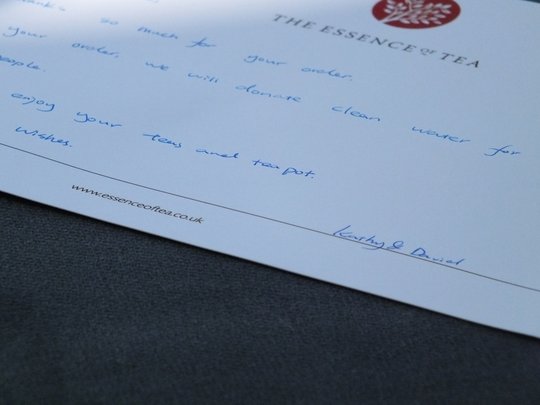 THE ESSENCE OF TEA
so much for your order.
your order, we will donate clean water for
people.
enjoy your teas and teapot.
wishes.
www.essenceoftea.co.uk
Kathy & David